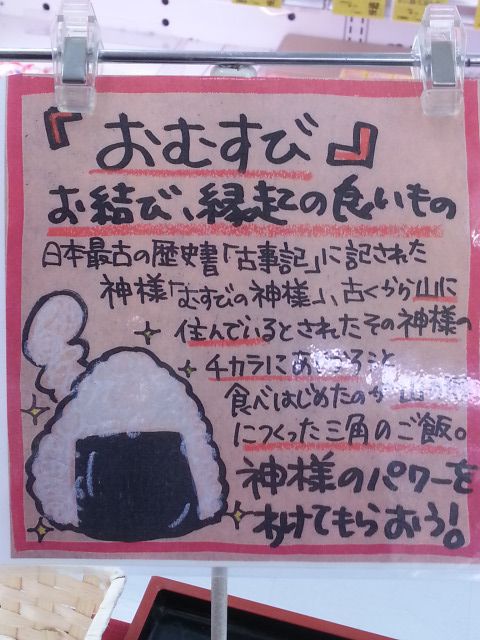 『おむすび』
お結び、縁起の良いもの
日本最古の歴史書「古事記」に記された
神様「むすびの神様」、古くから山に
住んでいるとされたその神様の
チカラにあ ろうと
食べはじめたのが山
につくった三角のご飯。
神様のパワーを
わけてもらおう!